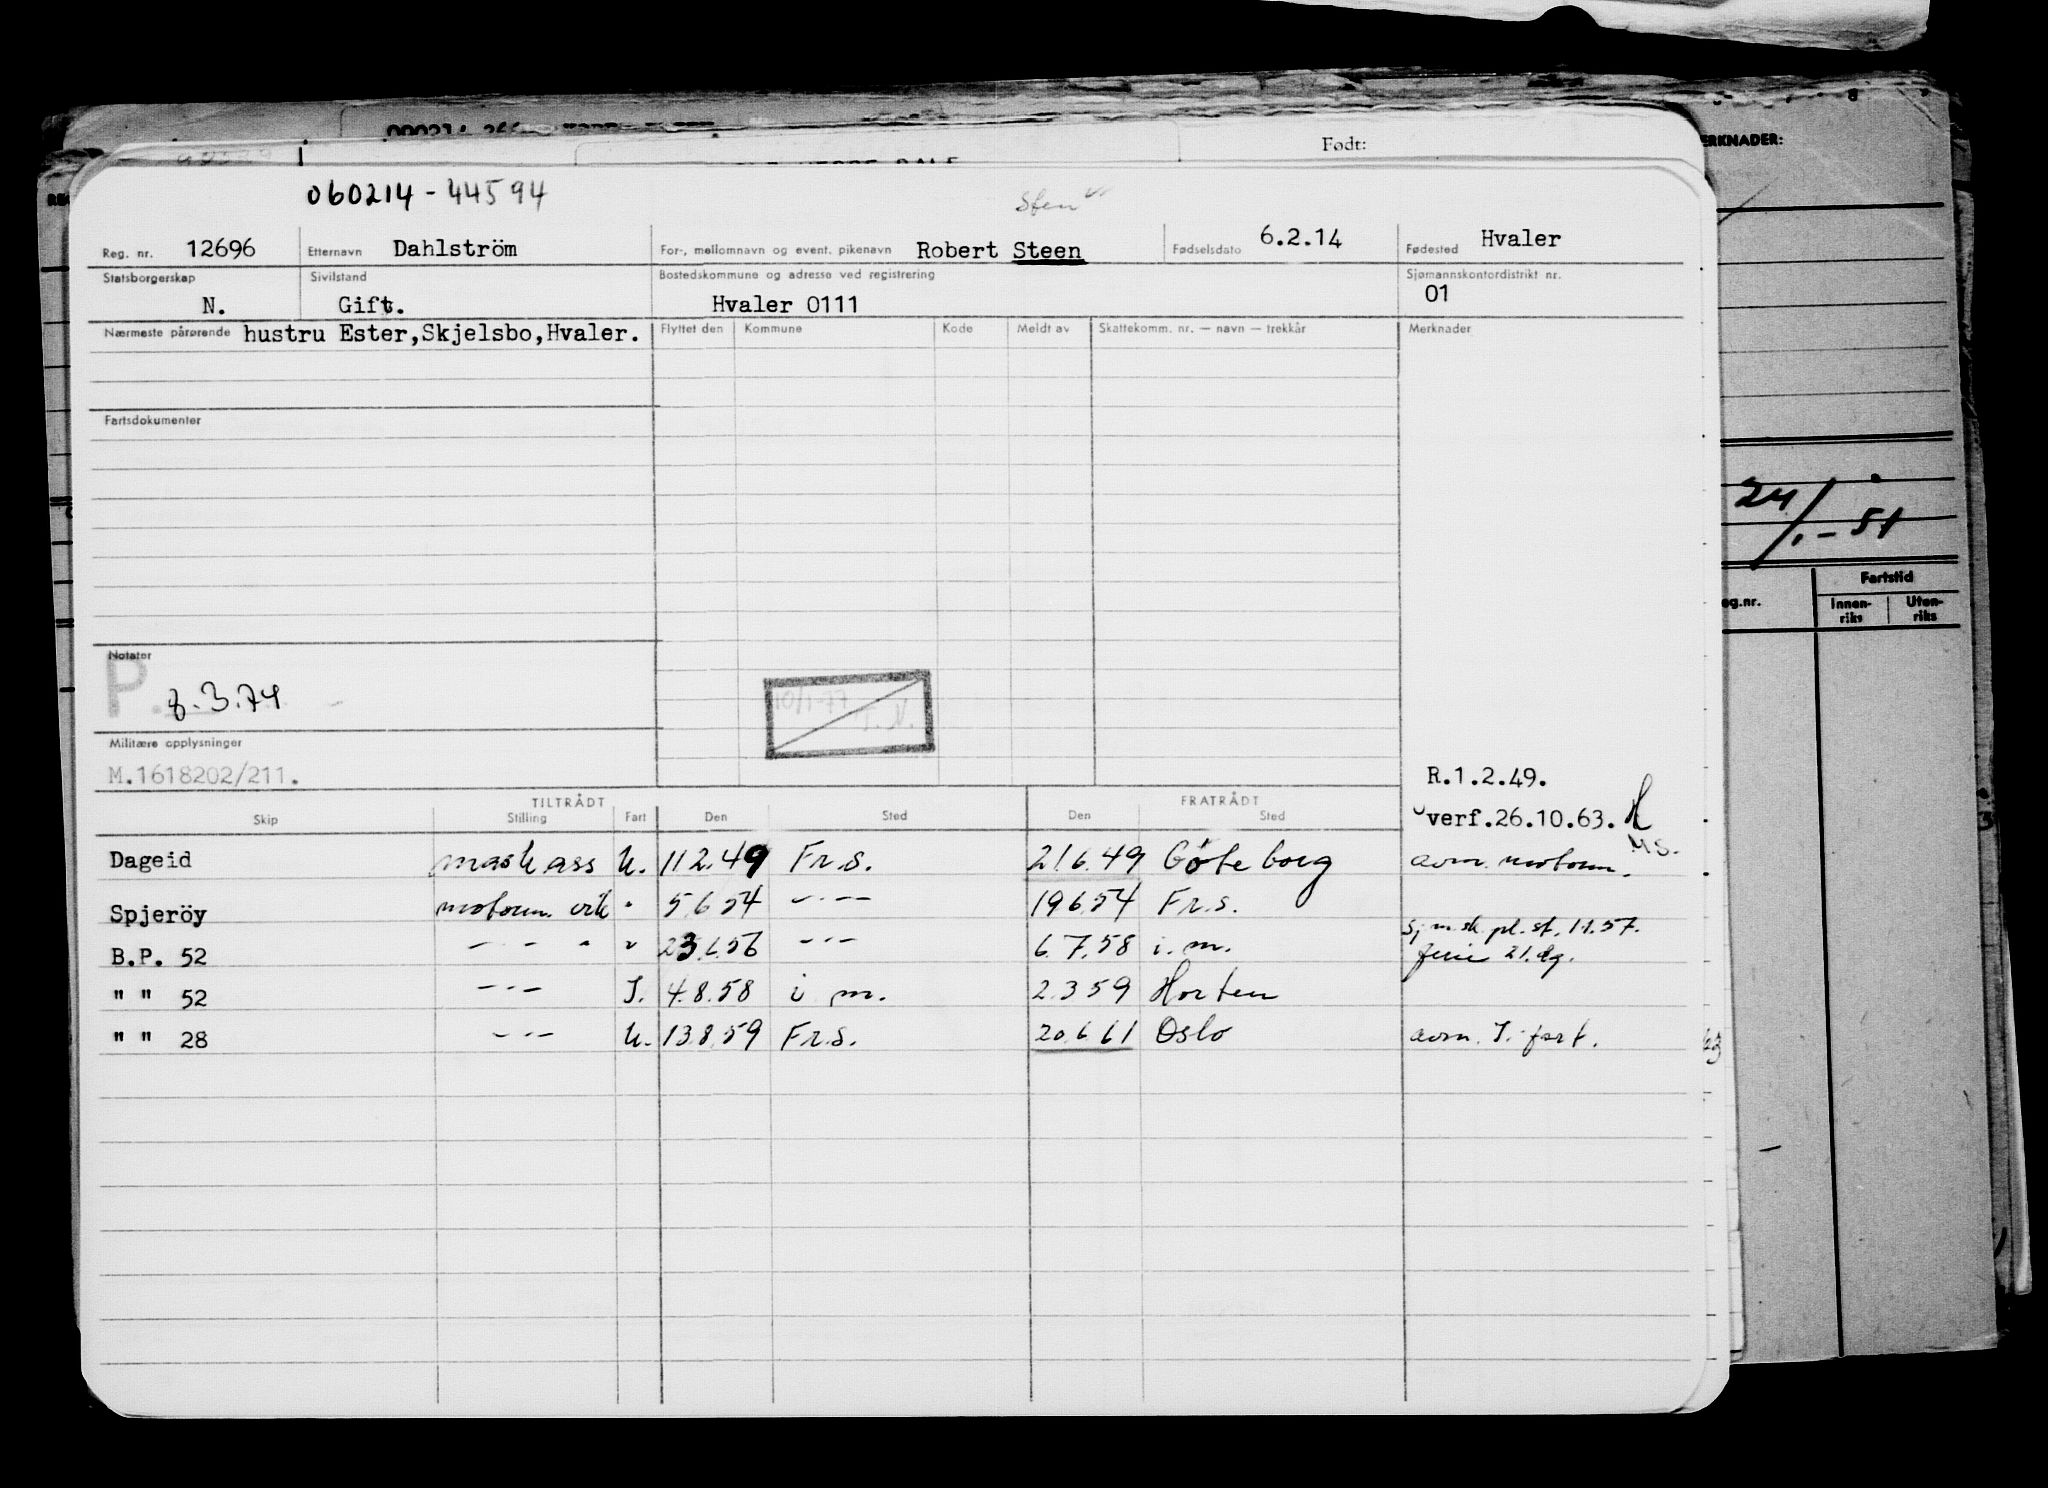 Født:
ERKNADER:
060214-44594
Sten
Reg. nr. 12696 Etternavn Dahlström For-, mellomnavn og event. pikenavn Robert Steen Fødselsdato 6.2.14 Fødested Hvaler
Statsborgerskap Sivilstand Bostedskommune og adresse ved registrering Sjømannskontordistrikt nr.
N. Gift. Hvaler 0111 01
Nærmeste pårørende hustru Ester,Skjelsbo,Hvaler. Flyttet den Kommune Kode Meldt av Skattekomm. nr. — navn — trekkår Merknader
Fartsdokumenter
24/1-51
Fartstid
eg.nr. Innen-riks Uten-riks
Notater
P. 8.3.74
10/1-77
Militære opplysninger
M.1618202/211.
R.1.2.49.
TILTRÅDT FRATRÅDT
Skip Stilling Fart Den Sted Den Sted verf.26.10.63.
Dageid maskass U. 11 2.49 Fr.s. 21 6.49 Göteborg avm. motorm.
Spjeröy motorm. " 5.6.54 — " — 19 6.54 Fr.s.
sj.m.sk. pl. st. 1.1.57.
B.P. 52 — " — " " 23.6.56 — " — 6.7.58 i.m. ferie 21.dg.
" " 52 — " — I. 4.8.58 i m. 2.3 59 Horten
" " 28 — " — U. 13.8.59 Fr.s. 20.6.61 Oslo avm. I. fart.